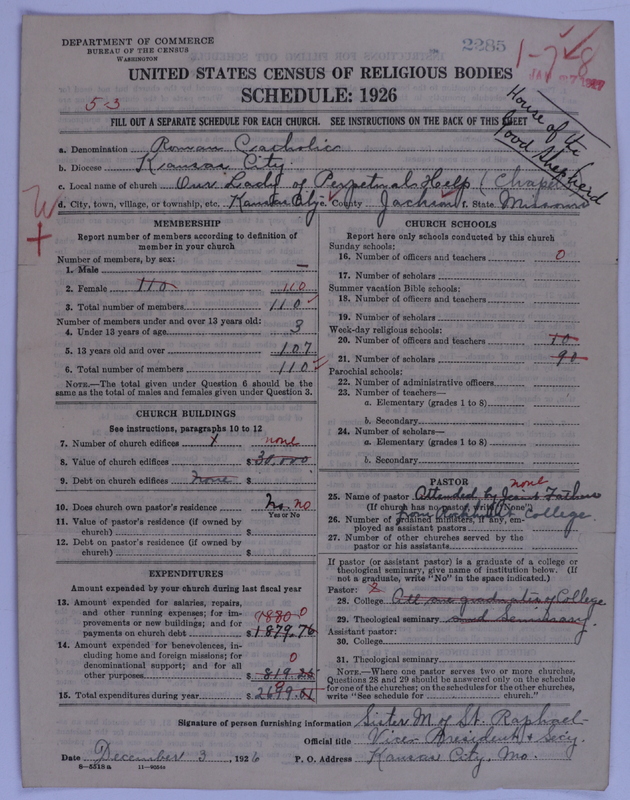 DEPARTMENT OF COMMERCE
BUREAU OF THE CENSUS
WASHINGTON
2285
1-7-8
UNITED STATES CENSUS OF RELIGIOUS BODIES
SCHEDULE: 1926
53
FILL OUT A SEPARATE SCHEDULE FOR EACH CHURCH. SEE INSTRUCTIONS ON THE BACK OF THIS SHEET
House of the Good Shepherd
a. Denomination Roman Catholic
b. Diocese Kansas City
c. Local name of church Our Lady of Perpetual Help (Chapel)
d. City, town, village, or township, etc. Kansas City e. County Jackson f. State Missouri
MEMBERSHIP
Report number of members according to definition of
member in your church
Number of members, by sex:
1. Male —
2. Female 110 110
3. Total number of members 110
Number of members under and over 13 years old:
4. Under 13 years of age 3
5. 13 years old and over 107
6. Total number of members 110
NOTE.—The total given under Question 6 should be the
same as the total of males and females given under Question 3.
CHURCH BUILDINGS
See instructions, paragraphs 10 to 12
7. Number of church edifices 1 none
8. Value of church edifices $ 30,000
9. Debt on church edifices none $
10. Does church own pastor's residence No. no
Yes or No
11. Value of pastor's residence (if owned by
church) $
12. Debt on pastor's residence (if owned by
church) $
EXPENDITURES
Amount expended by your church during last fiscal year
13. Amount expended for salaries, repairs,
and other running expenses; for im-
provements or new buildings; and for
payments on church debt $ 1880 0 1879.76
14. Amount expended for benevolences, in-
cluding home and foreign missions; for
denominational support; and for all
other purposes 0 $ 819.25
15. Total expenditures during year $ 2699.01
CHURCH SCHOOLS
Report here only schools conducted by this church
Sunday schools:
16. Number of officers and teachers 0
17. Number of scholars
Summer vacation Bible schools:
18. Number of officers and teachers
19. Number of scholars
Week-day religious schools:
20. Number of officers and teachers 10
21. Number of scholars 90
Parochial schools:
22. Number of administrative officers
23. Number of teachers—
a. Elementary (grades 1 to 8)
b. Secondary
24. Number of scholars—
a. Elementary (grades 1 to 8)
b. Secondary
PASTOR
none
25. Name of pastor Attended by Jesuit Fathers
(If church has no pastor, write "None")
from Rockhurst College.
26. Number of ordained ministers, if any, em-
ployed as assistant pastors
27. Number of other churches served by the
pastor or his assistants
If pastor (or assistant pastor) is a graduate of a college or
theological seminary, give name of institution below. (If
not a graduate, write "No" in the space indicated.)
Pastor:
28. College All are graduates of College
29. Theological seminary and Seminary.
Assistant pastor:
30. College
31. Theological seminary
NOTE.—Where one pastor serves two or more churches,
Questions 28 and 29 should be answered only on the schedule
for one of the churches; on the schedules for the other churches,
write "See schedule for church."
Signature of person furnishing information Sister M of St. Raphael
Official title Vice President & Secy.
Date December 3, 1926 P. O. Address Kansas City, Mo.
8-5518a 11-9054a